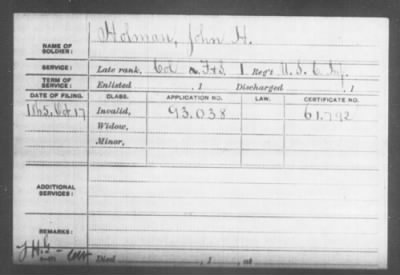 Holman, John H.
NAME OF SOLDIER:
SERVICE: Late rank, Col F&S 1 Reg't U.S.C. Inf.
TERM OF SERVICE: Enlisted , 1 Discharged , 1
DATE OF FILING. CLASS. APPLICATION NO. LAW. CERTIFICATE NO.
1865. Oct 17 Invalid, 93.038 61.792
Widow,
Minor,
ADDITIONAL SERVICES:
REMARKS:
Died , 1 , at